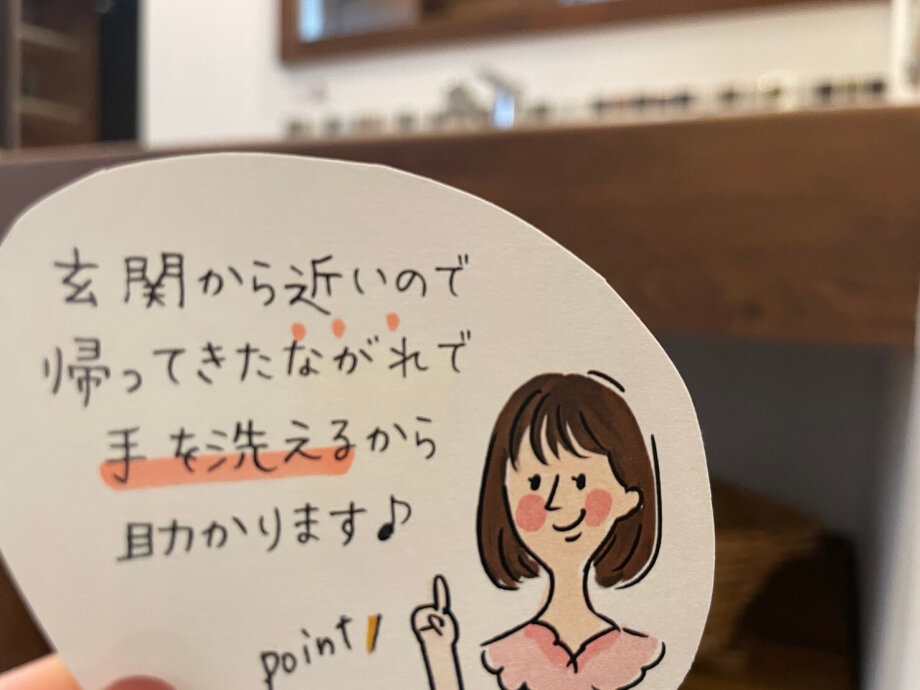 玄関から近いので
帰ってきたながれで
手を洗えるから
助かります♪
point!